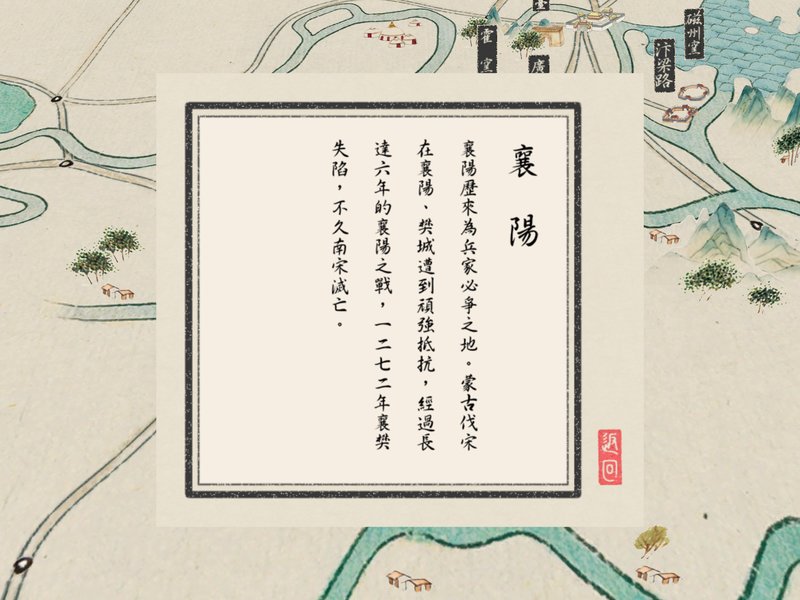 襄陽
襄陽歷來為兵家必爭之地。蒙古伐宋
在襄陽、樊城遭到頑強抵抗，經過長
達六年的襄陽之戰，一二七二年襄樊
失陷，不久南宋滅亡。
返回
磁州窯
汴梁路
霍窯
廣